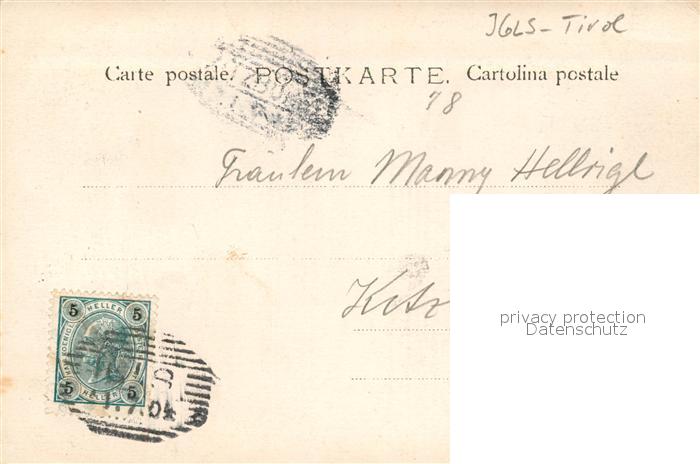 IGLS-Tirol
Carte postale. POSTKARTE. Cartolina postale
78
Fräulein Manny Hellrigl
Kitz
privacy protection
Datenschutz
5 HELLER 5
5 HELLER 5